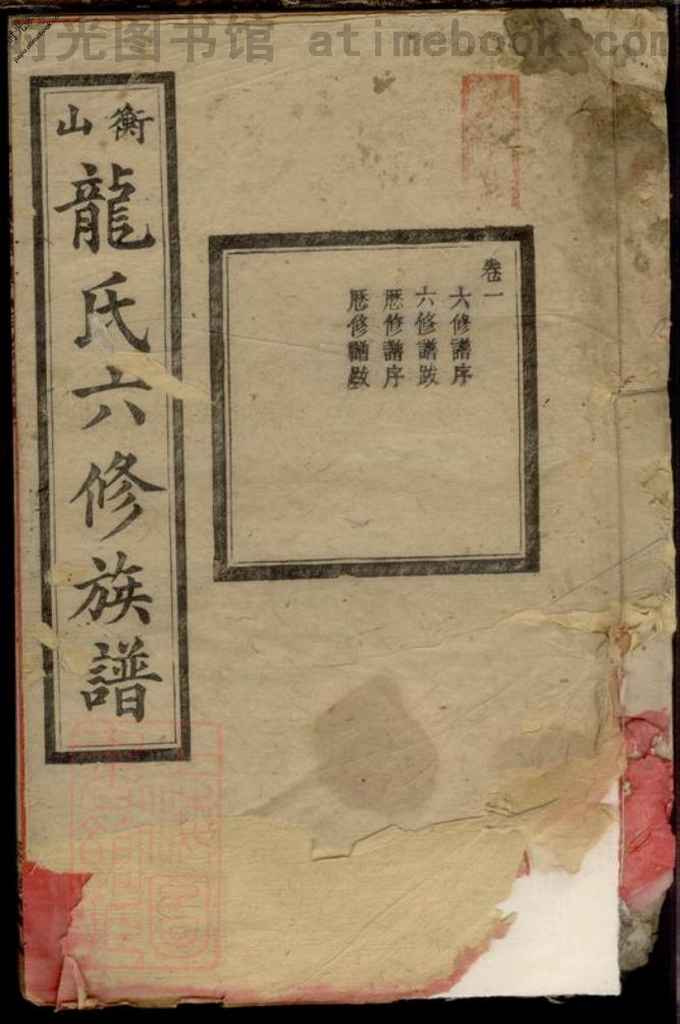 时光图书馆 atimebook.com
衡山
龍氏六修族譜
卷一
六修譜序
六修譜跋
厯修譜序
厯修譜跋